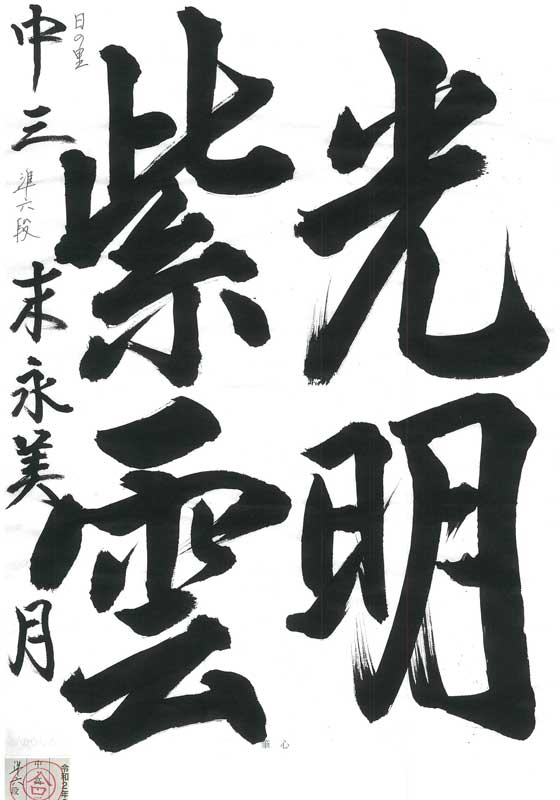 光明
紫雲
日の里
中三 準六段 末永美月
筆心
令和2年
中
準六段